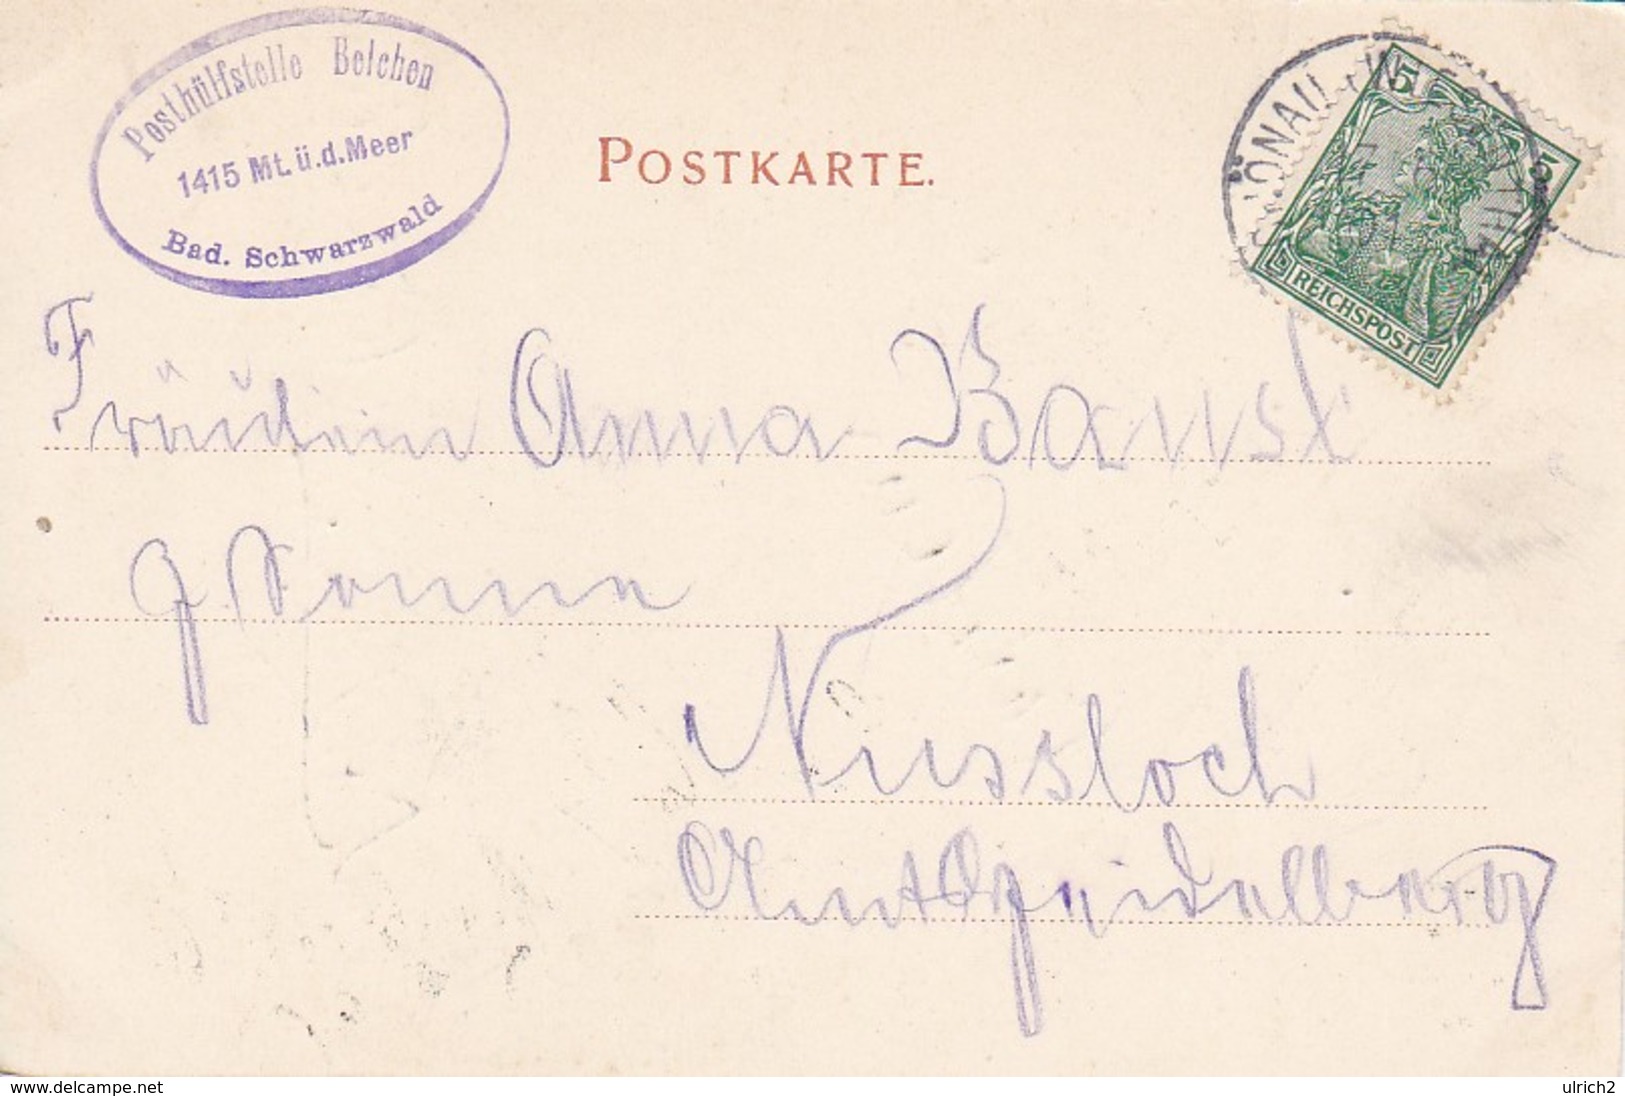 Posthülfstelle Belchen
1415 Mt. ü.d. Meer
Bad. Schwarzwald
POSTKARTE.
5
5
REICHSPOST
Fräulein Anna
Nussloch
Amt Heidelberg
www.delcampe.net
ulrich2